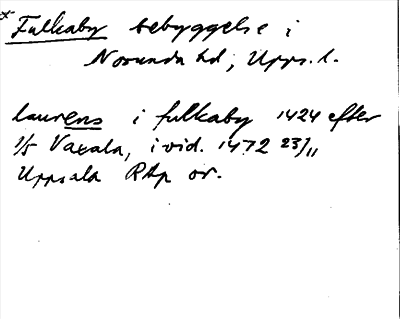 * Fulkaby bebyggelse i
Norunda hd, Upps. l.
laurens i fulkaby 1424 efter
1/5 Vaxala, i vid. 1472 23/11
Uppsala RAp or.